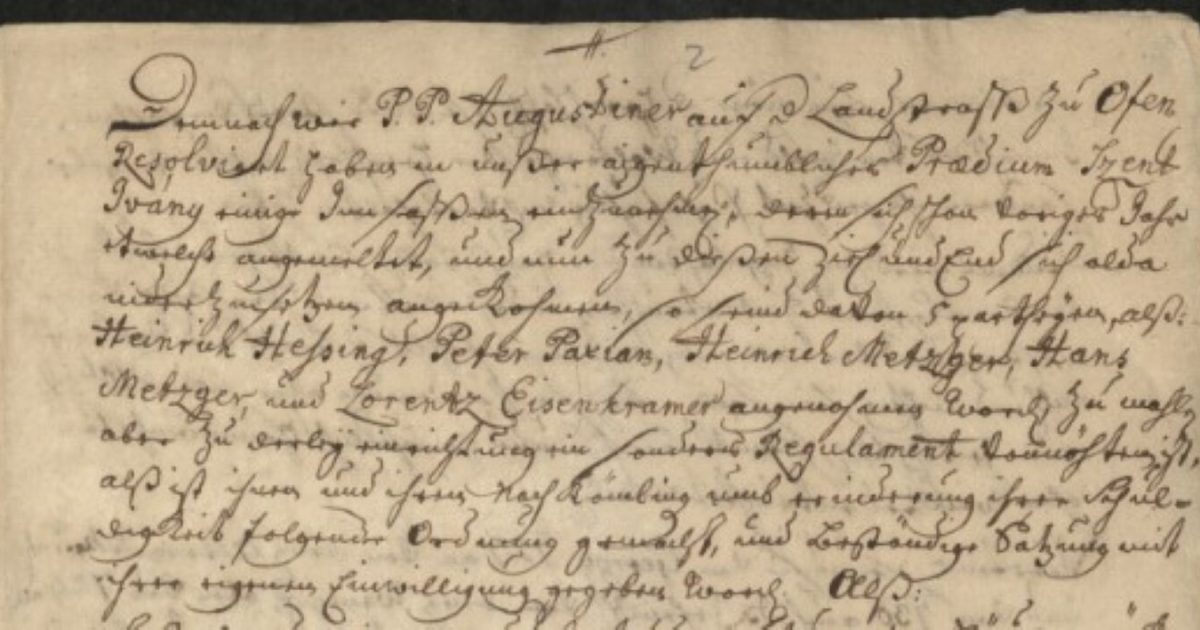 2
Demnach wir P. P. Augustiner auf d Landstrass zu Ofen
Resolviert haben in unßer aigenthumbliches Prædium Szent
Ivany einige Innsassen einzunehmen, deren sich schon voriges Jahr
etwelche angemeltet, und nun zu dießen Zihl und End sich alda
niderzusetzen angekohmen, so seind davon 5 partheyen, alß:
Heinrich Hessing, Peter Paxian, Heinrich Metzger, Hans
Metzger, und Lorentz Eisenkramer angenohmen word. Zu mahl,
aber zu derley einrichtung ein sonders Regulament vonnöhten ist,
alß ist ihnen und ihren Nachkömbling umb erinderung ihrer Schul-
digkeit folgende Ordnung gemacht, und Beständige Satzung mit
ihrer eigenen Einwilligung gegeben word. Alß: